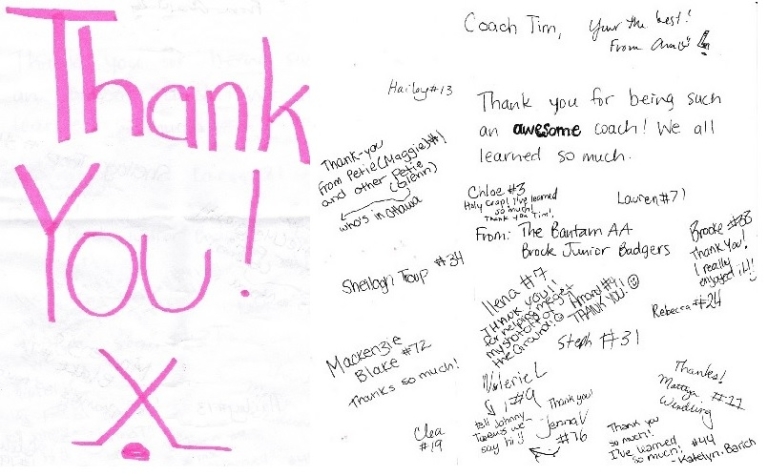 Thank
You!
Coach Tim, Your the best!
From
Hailey#13
Thank you for being such
an awesome coach! We all
learned so much.
Thank-you
from Petie(Maggie)#1
and other Petie
(Glenn)
who's in Ottawa
Chloe #3
Holy Crap! I've learned
so much!
Thank you Tim!
Lauren#71
From: The Bantam AA
Brock Junior Badgers
Brooke #88
Thank you!
I really
enjoyed it!!
#34
Ilena #7
Thank you!!
for helping me get
my shot off of
the Ground!
THANK YOU!
Rebecca #24
Steph #31
Mackenzie
Blake #72
Thanks so much!
Valerie L
#9
tell Johnny
we
say hi
Thank you!
Jenna V
#76
Thanks!
Clea
#19
Thank you
so much!!
I've learned
so much! #44
- Katelyn. Barich